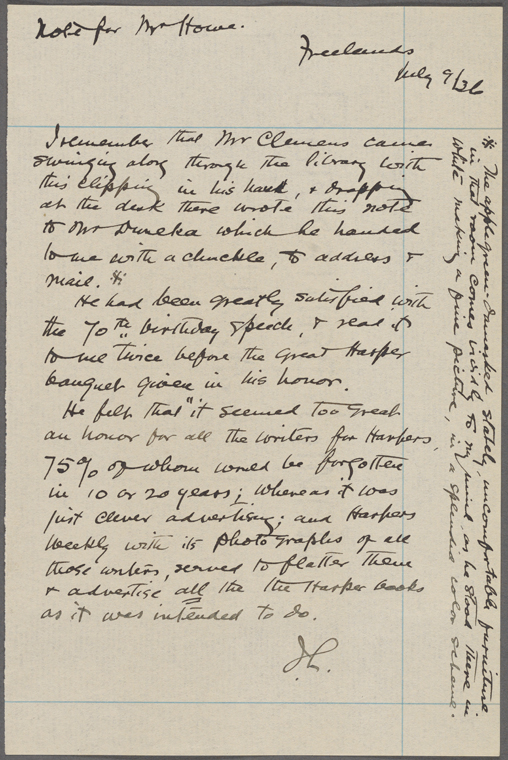 Note for Mr Howe.
Freelands
July 9/36
I remember that Mr Clemens came
swinging along through the library with
this clipping in his hand, & dropping
at the desk there wrote this note
to Mr Duneka which he handed
to me with a chuckle, to address &
mail. *
He had been greatly satisfied with
the 70th birthday speech, & read it
to me twice before the great Harper
banquet given in his honor.
He felt that "it seemed too great
an honor for all the writers for Harpers,
75% of whom would be forgotten
in 10 or 20 years; whereas it was
just clever advertising; and Harpers
Weekly with its photographs of all
those writers, served to flatter them
& advertise all the the Harper books
as it was intended to do.
I.L.
* The apple green damasked stately, uncomfortable furniture
in that room comes vividly to my mind as he stood there in
white making a fine picture, in a splendid color scheme.